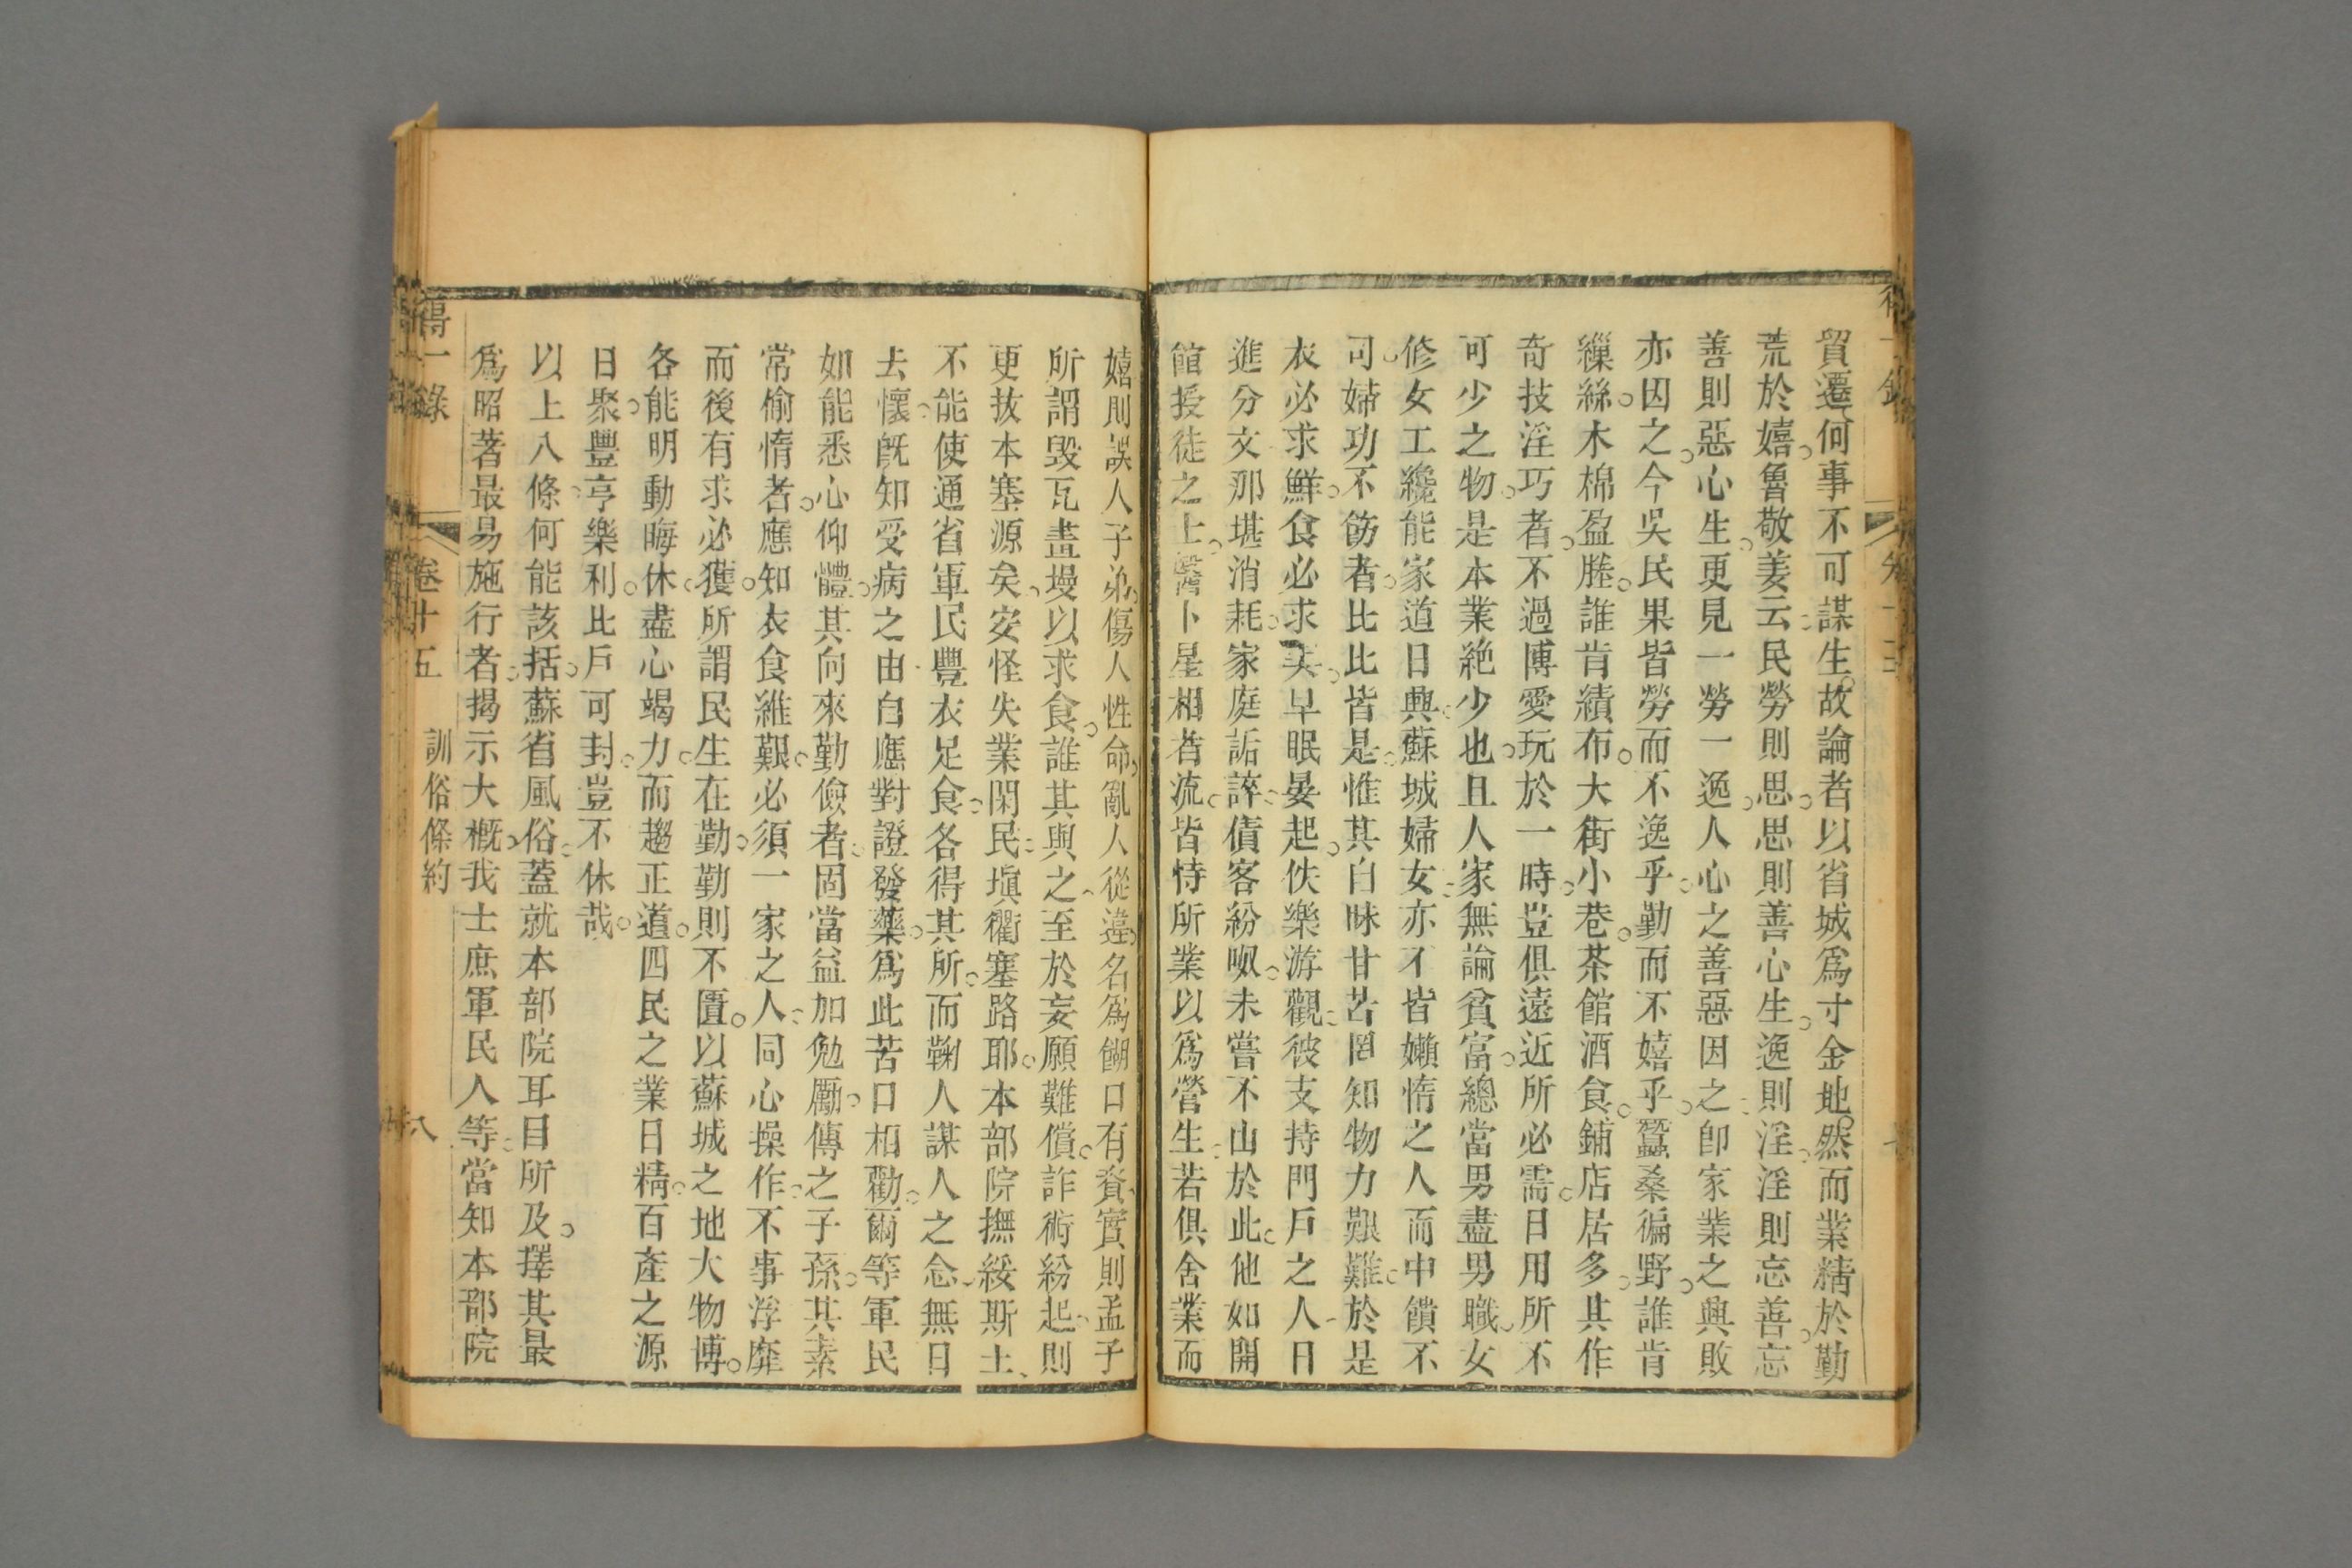 貿遷何事不可謀生故論者以省城爲寸金地然而業精於勤
荒於嬉魯敬姜云民勞則思思則善心生逸則淫淫則忘善忘
善則惡心生更見一勞一逸人心之善惡因之卽家業之興敗
亦因之今吳民果皆勞而不逸乎勤而不嬉乎蠶桑徧野誰肯
繅絲木棉盈塍誰肯績布大街小巷茶館酒食鋪店居多其作
奇技淫巧者不過博愛玩於一時豈俱遠近所必需日用所不
可少之物是本業絶少也且人家無論貧富總當男盡男職女
修女工纔能家道日興蘇城婦女亦不皆嬾惰之人而中饋不
司婦功不飭者比比皆是惟其自昧甘苦罔知物力艱難於是
衣必求鮮食必求美早眠晏起佚樂游觀彼支持門戶之人日
進分文那堪消耗家庭詬誶債客紛呶未嘗不由於此他如開
館授徒之上醫卜星相者流皆恃所業以爲營生若俱舍業而
嬉則誤人子弟傷人性命亂人從違名爲餬口有資實則孟子
所謂毀瓦畫墁以求食誰其與之至於妄願難償詐術紛起則
更拔本塞源矣安怪失業閑民塡衢塞路耶本部院撫綏斯土
不能使通省軍民豐衣足食各得其所而鞠人謀人之念無日
去懷旣知受病之由自應對證發藥爲此苦口相勸爾等軍民
如能悉心仰體其向來勤儉者固當益加勉勵傳之子孫其素
常偷惰者應知衣食維艱必須一家之人同心操作不事浮靡
而後有求必獲所謂民生在勤勤則不匱以蘇城之地大物博
各能明動晦休盡心竭力而趨正道四民之業日精百產之源
日聚豐亨樂利比戶可封豈不休哉
以上八條何能該括蘇省風俗蓋就本部院耳目所及擇其最
爲昭著最易施行者揭示大概我士庶軍民人等當知本部院
得一錄 卷十五 訓俗條約 八